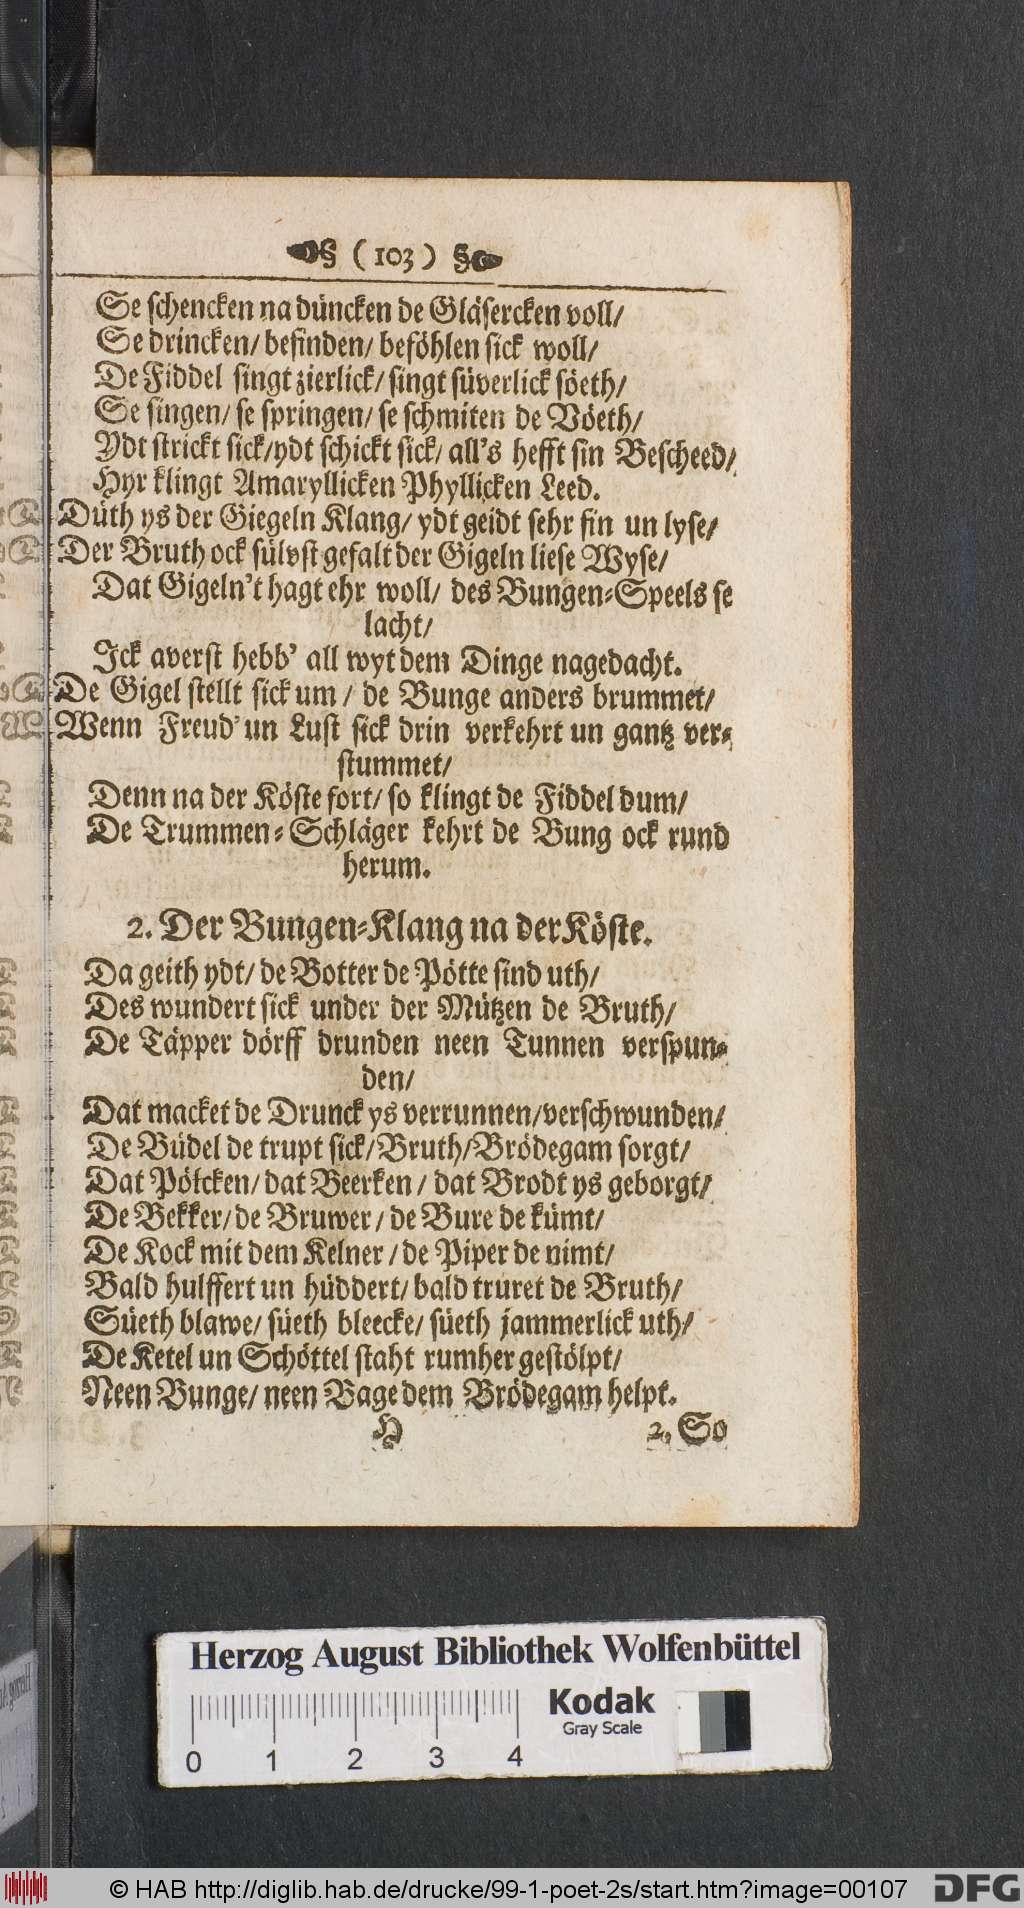 ( 103 )
Se schencken na düncken de Gläsercken voll/
Se drincken/ befinden/ beföhlen sick woll/
De Fiddel singt zierlick/ singt süverlick söeth/
Se singen/ se springen/ se schmiten de Vöeth/
Ydt strickt sick/ ydt schickt sick/ all's hefft sin Bescheed/
Hyr klingt Amaryllicken Phyllicken Leed.
Düth ys der Giegeln Klang/ ydt geidt sehr fin un lyse/
Der Bruth ock sülvst gefalt der Gigeln liese Wyse/
Dat Gigeln't hagt ehr woll/ des Bungen-Speels se
lacht/
Ick averst hebb' all wyt dem Dinge nagedacht.
De Gigel stellt sick um / de Bunge anders brummet/
Wenn Freud' un Lust sick drin verkehrt un gantz ver-
stummet/
Denn na der Köste fort/ so klingt de Fiddel dum/
De Trummen-Schläger kehrt de Bung ock rund
herum.
2. Der Bungen-Klang na der Köste.
Da geith ydt/ de Botter de Pötte sind uth/
Des wundert sick under der Mützen de Bruth/
De Täpper dörff drunden neen Tunnen verspun-
den/
Dat macket de Drunck ys verrunnen/ verschwunden/
De Büdel de trupt sick/ Bruth/ Brödegam sorgt/
Dat Pötcken/ dat Beerken / dat Brodt ys geborgt/
De Bekker/ de Bruwer / de Bure de kümt/
De Kock mit dem Kelner / de Piper de nimt/
Bald hulffert un hüddert/ bald truret de Bruth/
Süeth blawe/ süeth bleecke/ süeth jammerlick uth/
De Ketel un Schöttel staht rumher gestölpt/
Neen Bunge/ neen Bage dem Brödegam helpt.
H 2. So
Herzog August Bibliothek Wolfenbüttel
Kodak
Gray Scale
0 1 2 3 4
© HAB http://diglib.hab.de/drucke/99-1-poet-2s/start.htm?image=00107
DFG